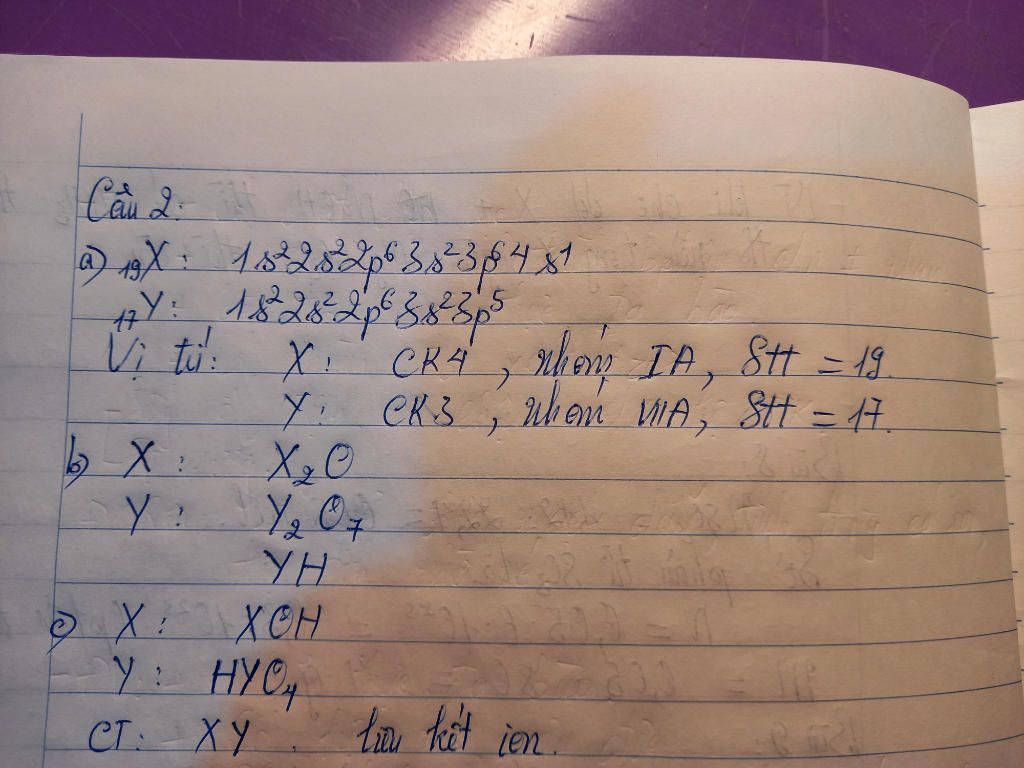 Câu 2:
a) ₁₉X : 1s²2s²2p⁶3s²3p⁶4s¹
₁₇Y : 1s²2s²2p⁶3s²3p⁵
Vị trí : X : CK4 , nhóm IA, STT = 19.
Y : CK3 , nhóm VIIA, STT = 17.
b) X : X₂O
Y : Y₂O₇
YH
c) X : XOH
Y : HYO₄
CT : XY . liên kết ion.